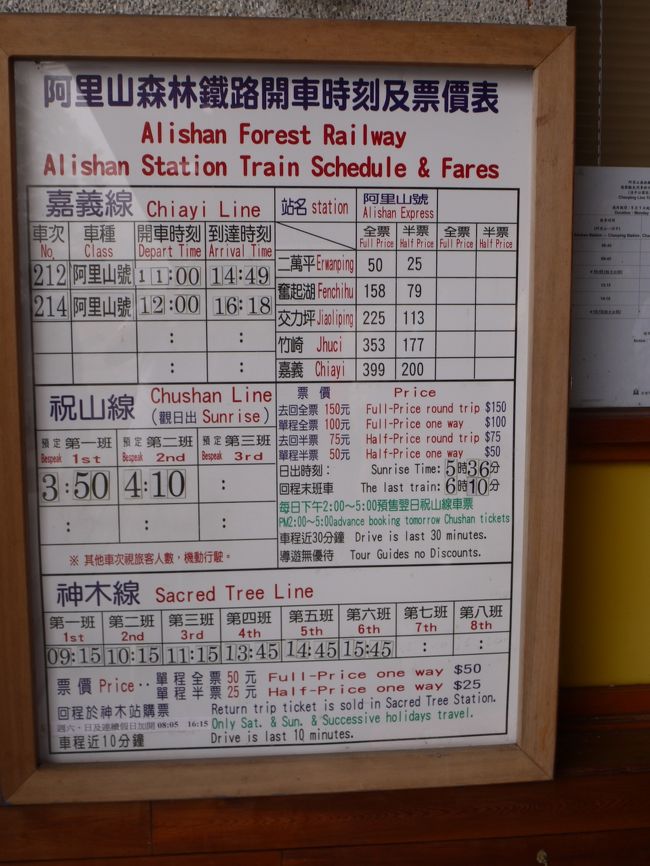 阿里山森林鐵路開車時刻及票價表
Alishan Forest Railway
Alishan Station Train Schedule & Fares
嘉義線 Chiayi Line
車次 車種 開車時刻 到達時刻
No. Class Depart Time Arrival Time
212 阿里山號 11:00 14:49
214 阿里山號 12:00 16:18
: :
: :
站名 station 阿里山號
Alishan Express
全票 半票 全票 半票
Full Price Half Price Full Price Half Price
二萬平 Erwanping 50 25
奮起湖 Fenchihu 158 79
交力坪 Jiaoliping 225 113
竹崎 Jhuci 353 177
嘉義 Chiayi 399 200
祝山線 Chushan Line
(觀日出 Sunrise)
預定 第一班 預定 第二班 預定 第三班
Bespeak 1st Bespeak 2nd Bespeak 3rd
3:50 4:10 :
: : :
※ 其他車次視旅客人數，機動行駛。
票價 Price
去回全票 150元 Full-Price round trip $150
單程全票 100元 Full-Price one way $100
去回半票 75元 Half-Price round trip $75
單程半票 50元 Half-Price one way $50
日出時刻： Sunrise Time: 5時36分
回程末班車 The last train: 6時10分
每日下午2:00～5:00預售翌日祝山線車票
PM2:00～5:00advance booking tomorrow Chushan tickets
車程近30分鐘 Drive is last 30 minutes.
導遊無優待 Tour Guides no Discounts.
神木線 Sacred Tree Line
第一班 第二班 第三班 第四班 第五班 第六班 第七班 第八班
1st 2nd 3rd 4th 5th 6th 7th 8th
09:15 10:15 11:15 13:45 14:45 15:45 : :
票價 Price‥ 單程全票 50 元 Full-Price one way $50
單程半票 25 元 Half-Price one way $25
回程於神木站購票 Return trip ticket is sold in Sacred Tree Station.
週六、日及連續假日加開 08:05 16:15 Only Sat. & Sun. & Successive holidays travel.
車程近10分鐘 Drive is last 10 minutes.